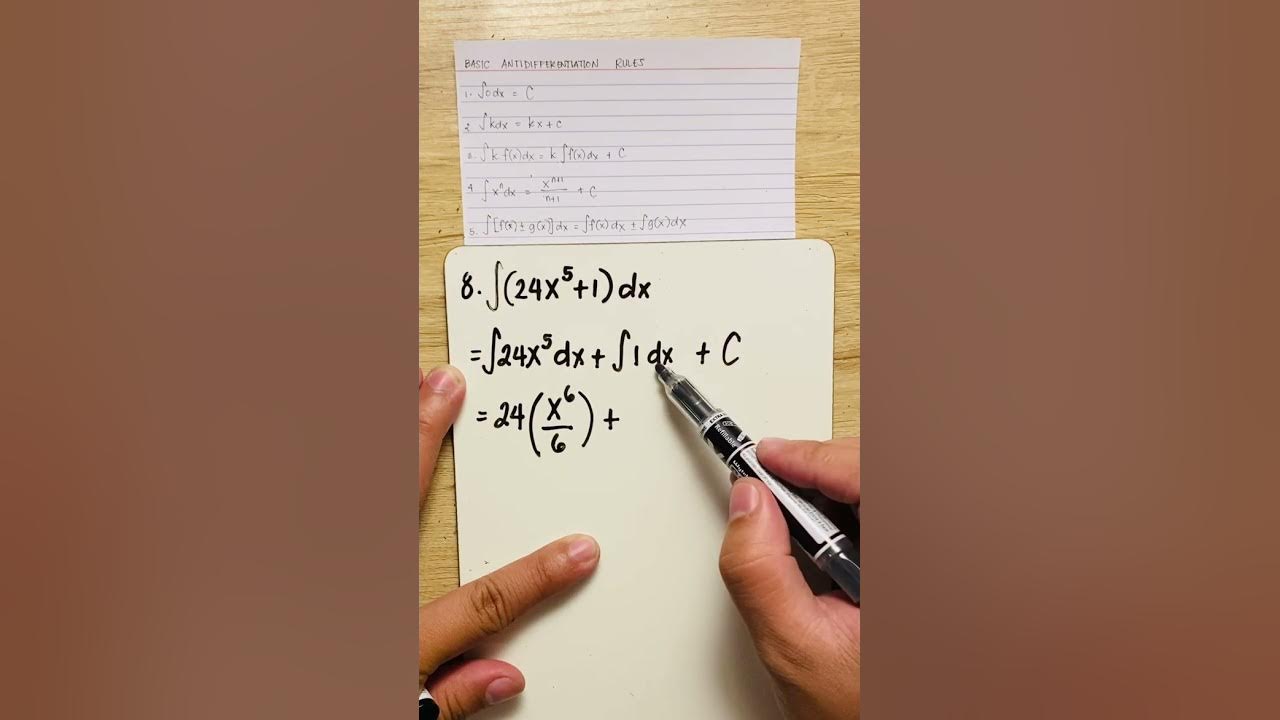 BASIC ANTIDIFFERENTIATION RULES
1. ∫0dx = C
2. ∫kdx = kx + C
3. ∫k f(x)dx = k ∫f(x)dx + C
4. ∫xⁿdx = xⁿ⁺¹/n+1 + C
5. ∫[f(x) ± g(x)]dx = ∫f(x)dx ± ∫g(x)dx
8. ∫(24x⁵+1)dx
= ∫24x⁵dx + ∫1dx + C
= 24(x⁶/6) +
Refillable